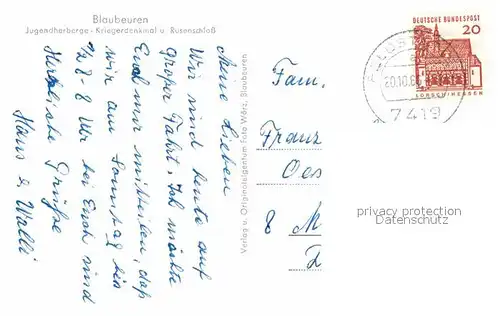 Blaubeuren
Jugendherberge - Kriegerdenkmal u. Rusenschloß
Meine Lieben
Wir sind heute auf
großer Fahrt. Ich möchte
Euch nur mitteilen, daß
wir am Sonntag bis
1/2 8 - 8 Uhr bei Euch sind
Herzliche Grüße
Hans & Walli
Verlag u. Originaleigentum Foto Wörz, Blaubeuren
DEUTSCHE BUNDESPOST
20
LORSCH/HESSEN
7419
Fam.
Franz
Oes
8 M
privacy protection
Datenschutz